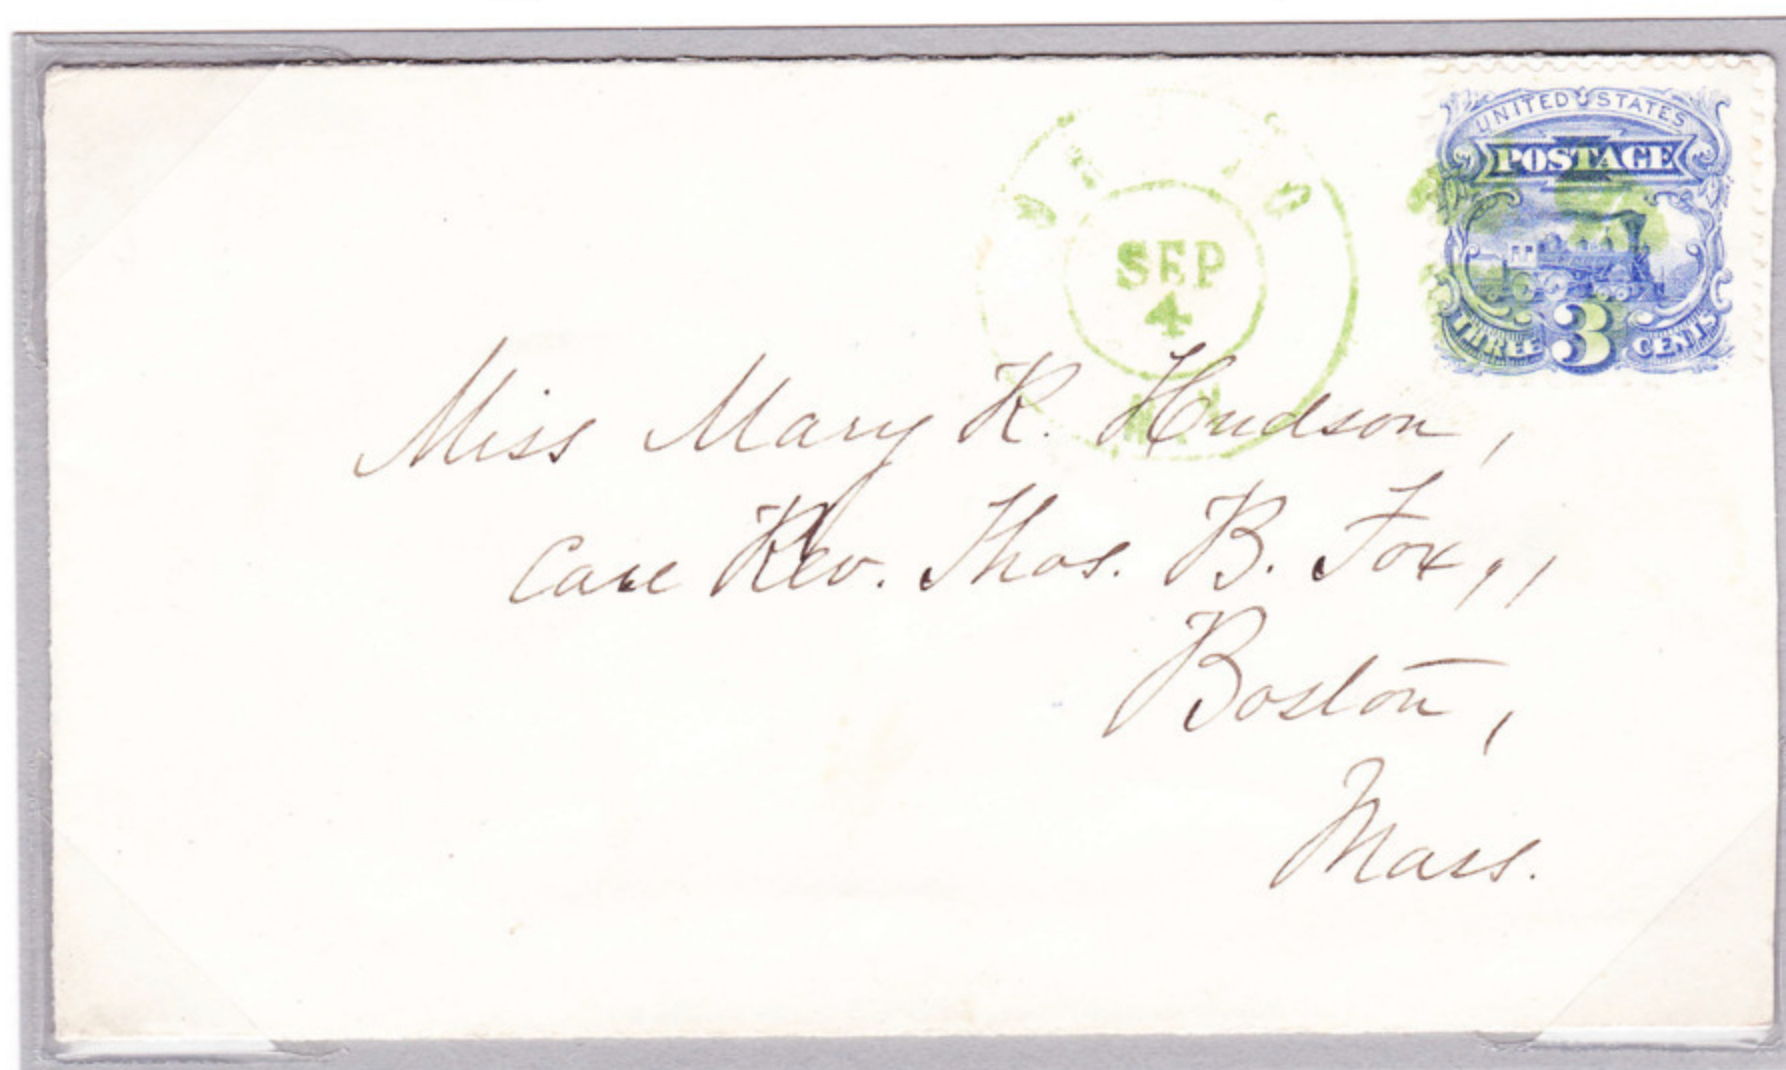 UNITED STATES
POSTAGE
THREE 3 CENTS
SEP
4
Miss Mary R. Hudson,
Care Rev. Thos. B. Fox,,
Boston,
Mass.